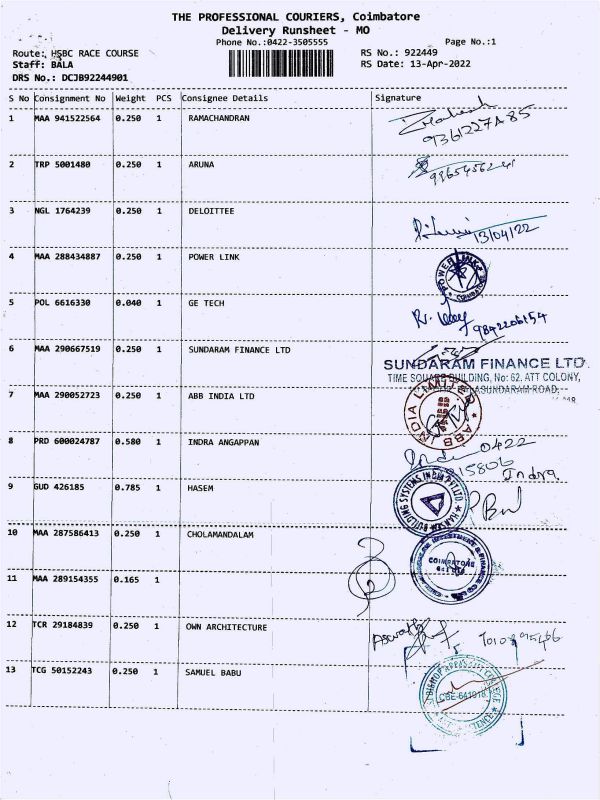 THE PROFESSIONAL COURIERS, Coimbatore
Delivery Runsheet - MO
Phone No.:0422-3505555
Page No.:1
Route: HSBC RACE COURSE
RS No.: 922449
Staff: BALA
RS Date: 13-Apr-2022
DRS No.: DCJB92244901
S No Consignment No Weight PCS Consignee Details Signature
1 MAA 941522564 0.250 1 RAMACHANDRAN
2 TRP 5001480 0.250 1 ARUNA
3 NGL 1764239 0.250 1 DELOITTEE
13/04/22
4 MAA 288434887 0.250 1 POWER LINK
POWER LINK
5 POL 6616330 0.040 1 GE TECH
9842206154
6 MAA 290667519 0.250 1 SUNDARAM FINANCE LTD
SUNDARAM FINANCE LTD.
TIME SQUARE BUILDING, No: 62. ATT COLONY,
7 MAA 290052723 0.250 1 ABB INDIA LTD
ABB INDIA
8 PRD 600024787 0.580 1 INDRA ANGAPPAN
0422
Indra
9 GUD 426185 0.785 1 HASEM
BUILDING SYSTEMS INDIA PVT LTD
10 MAA 287586413 0.250 1 CHOLAMANDALAM
COIMBATORE
11 MAA 289154355 0.165 1
12 TCR 29184839 0.250 1 OWN ARCHITECTURE
13 TCG 50152243 0.250 1 SAMUEL BABU
CBE-641018